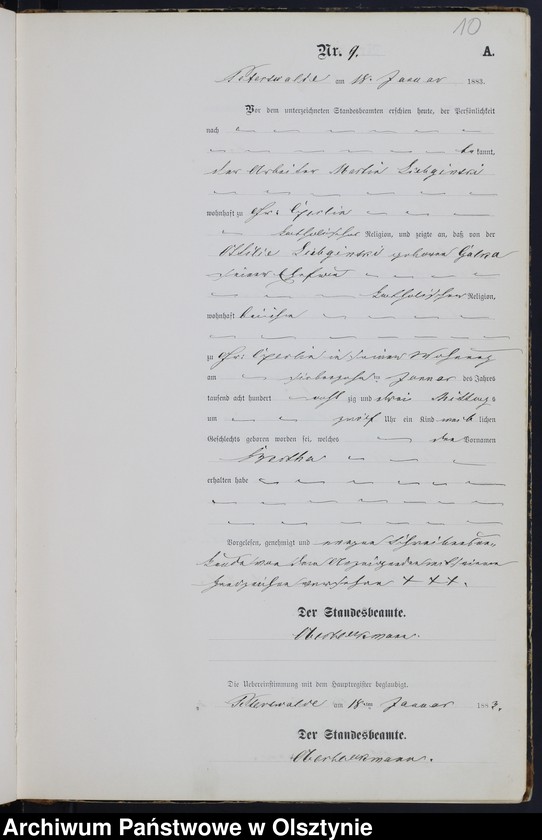 10
Nr. 9. A.
Peterswalde am 18. Januar 1883.
Vor dem unterzeichneten Standesbeamten erschien heute, der Persönlichkeit
nach
bekannt,
der Arbeiter Martin
wohnhaft zu Gr:
katholischer Religion, und zeigte an, daß von der
Ottilie geborene
seiner Ehefrau
katholischer Religion,
wohnhaft bei ihm
zu Gr: in seiner Wohnung
am siebenzehn ten Januar des Jahres
tausend acht hundert acht zig und drei Mittags
um zwölf Uhr ein Kind weib lichen
Geschlechts geboren worden sei, welches den Vornamen
Bertha
erhalten habe
Vorgelesen, genehmigt und wegen Schreibensun-
kunde von dem Anzeigenden mit seinem
Handzeichen versehen + + +.
Der Standesbeamte.
Die Uebereinstimmung mit dem Hauptregister beglaubigt.
Peterswalde am 18ten Januar 1883.
Der Standesbeamte.
Archiwum Państwowe w Olsztynie